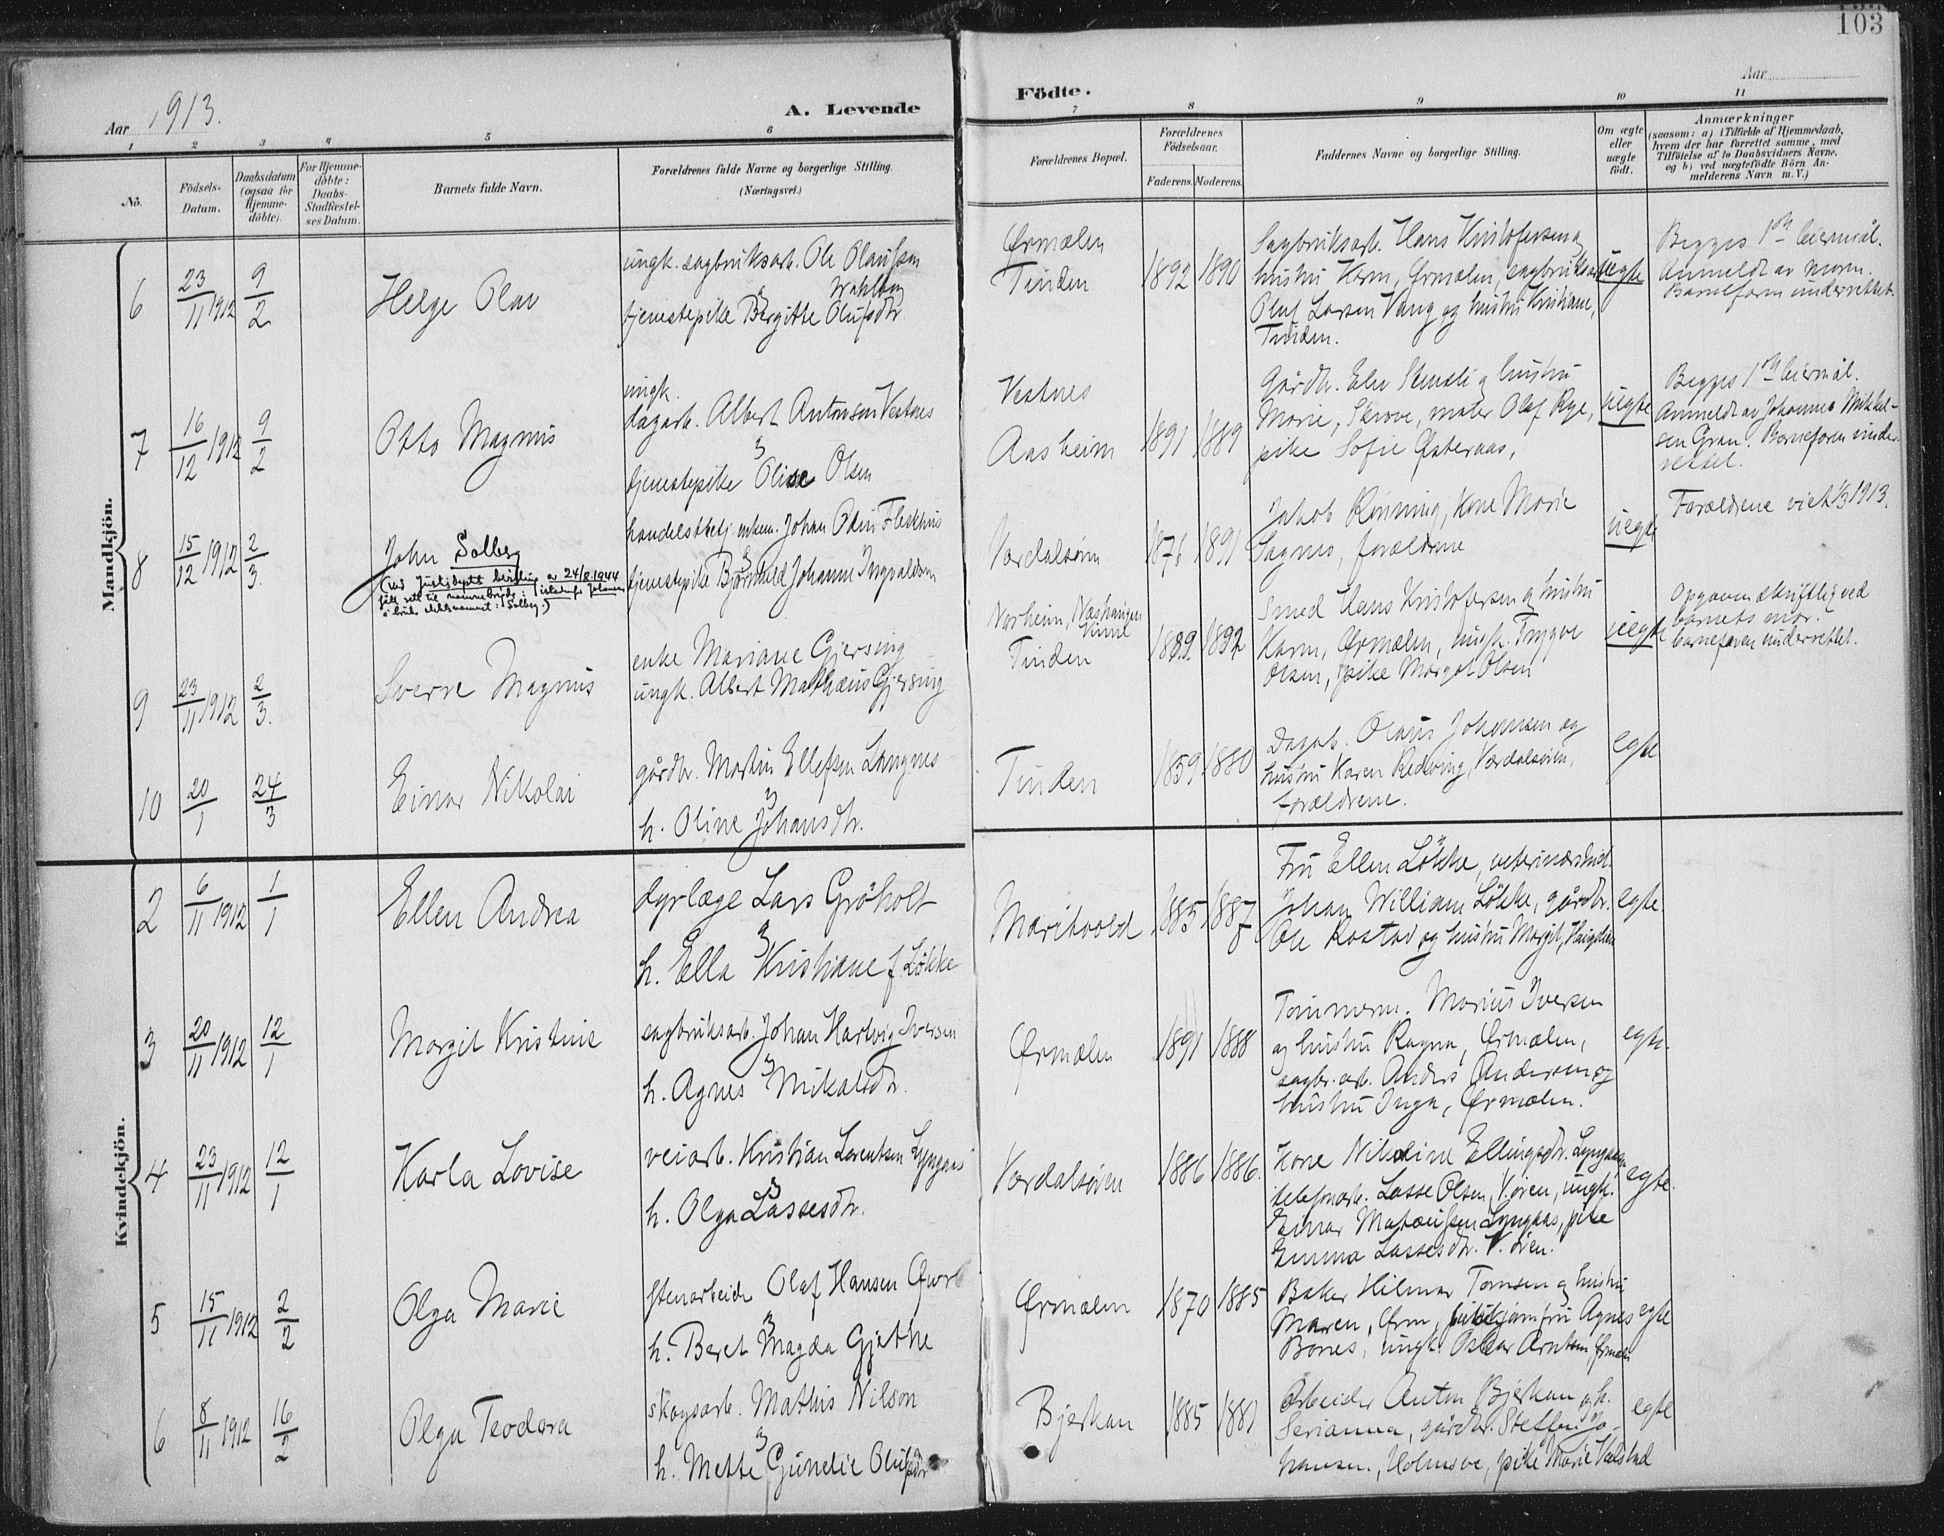 103
Aar 1913.
A. Levende
Födte.
Aar
1 2 3 4 5 6 7 8 9 10 11
No.
Födsels-Datum.
Daabsdatum (ogsaa for Hjemme-döbte).
For Hjemme-döbte: Daabs-Stadfæstel-ses Datum.
Barnets fulde Navn.
Forældrenes fulde Navne og borgerlige Stilling. (Næringsvei.)
Forældrenes Bopæl.
Forældrenes Födselsaar.
Faderens. Moderens.
Faddernes Navne og borgerlige Stilling.
Om ægte eller uægte födt.
Anmærkninger
(saasom: a) i Tilfælde af Hjemmedaab,
hvem der har forrettet samme, med
Tilföielse af to Daabsvidners Navne.
og b) ved uægtefödte Börn An-
melderens Navn m. V.)
Mandkjön.
6 23/11 1912 9/2 Helge Olav
ungk. sagbruksarb. Ole Olaussen
tjenestepike Bergitte Olufsdtr
Ørmælen
Tinden
1892 1890
Sagbruksarb. Hans Kristofersen og
hustru Karen, Ørmælen, sagbruksarb.
Oluf Larsen Vang og hustru Kristiane,
Tinden.
uegte
Begges 1ste leiermål.
Anmeldt av moren.
Barnefaren underrettet.
7 16/12 1912 9/2 Otto Magnus
ungk.
dagarb. Albert Antonsen Vestnes
tjenestepike Olise Olsen
Vestnes
Aasheim
1891 1889
Gårdbr. Elev Stensli og hustru
Marie, Skrove, maler Olaf Rye,
pike Sofie Østeraas,
uegte
Begges 1ste leiermål.
Anmeldt av Johannes Mikkel-
sen Gran. Barnefaren under-
rettet.
8 15/12 1912 2/3. John Solberg
(ved Justisdepts bevilling av 24/8.1944
fått rett til navnebytte: istedenfor Johansen
å bruke slektsnavnet: Solberg.)
handelsbetj. enkem. Johan Odin Fleskhus
tjenestepike Bjørnhild Johanne Ingvaldsen
Værdalsøren
1876 1891
Jakob Rønning, kone Marie
Sagnes, forældrene
uegte
Forældrene viet 1/3 1913.
9 23/11 1912 2/3. Sverre Magnus
enke Mariane Gjersing
ungk. Albert Mathæus Gjersing
Norheim,
Tinden
1889 1892
Smed Hans Kristofersen og hustru
Karen, Ørmælen, ungk. Trygve
Olsen, pike Margot Olsen
uegte
Opgaven skriftlig ved
barnets mor.
barnefaren underrettet.
10 20/1 24/3 Einar Nikolai
gårdbr. Martin Ellefsen Langnes
h. Oline Johansdtr.
Tinden
1859 1880
Dagarb. Olaus Johansen og
hustru Karen Redving, Værdalsøren,
forældrene.
egte
Kvindekjön.
2 6/11 1912 1/1 Ellen Andrea
dyrlæge Lars Grøholt
h. Ella Kristiane f. Løkke
Maritvold
1885 1887
Fru Ellen Løkke, veterinærstud.
Johan William Løkke, gårdbr.
Ole Rostad og hustru Margit,
egte.
3 20/11 1912 12/1 Margit Kristine
sagbruksarb. Johan Hartvig Iversen
h. Agnes Mikalsdtr.
Ørmælen
1891 1888
Tømmerm. Marius Iversen
og hustru Ragna, Ørmælen,
sagbr.arb. Anders Andersen og
hustru Inga, Ørmælen.
egte.
4 23/11 1912 12/1 Karla Lovise
veiarb. Kristian Lorentsen Lyngaas
h. Olga Lassesdtr.
Værdalsøren
1886 1886.
Kone Nikoline Ellingsdtr. Lyngaas,
telefonarb. Lasse Olsen, V.øren, ungk.
Einar Matæussen Lyngaas, pike
Emma Lassesdtr. V.øren.
egte.
5 15/11 1912 2/2 Olga Marie
stenarbeider Olaf Hansen
h. Beret Magda Gjethe
Ørmælen
1870 1885
Baker Hilmar Tomsen og hustru
Maren, Ørm, jomfru Agnes
Bones, ungk. Oskar Arntsen Ørmælen
egte
6 8/11 1912 16/2 Olga Teodora
skogsarb. Mathis Nilson
h. Mette Gunelie Olufsdtr
Bjerkan
1885 1881
Arbeider Anton Bjerkan og h.
Serianna, gårdbr. Steffen Jo-
hansen, Holmsve, pike Marie Valstad
egte